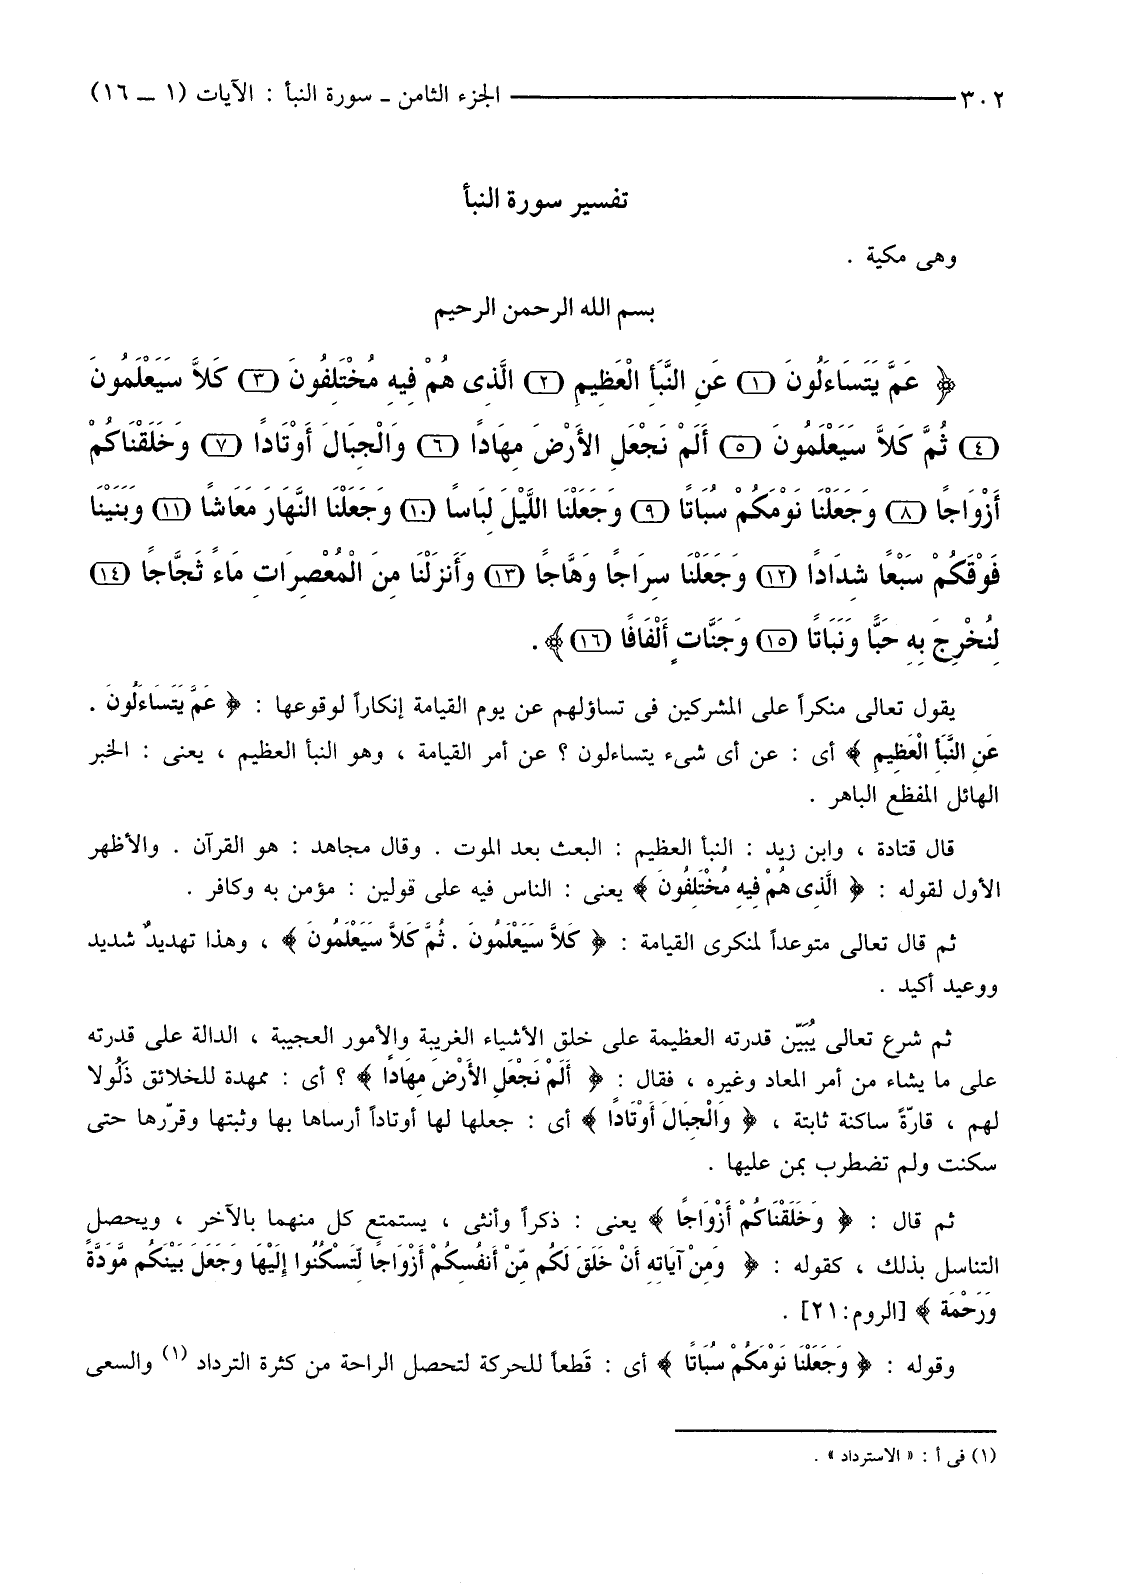 ٣٠٢ ــــــــــــــــــ الجزء الثامن ـ سورة النبأ : الآيات (١ ــ ١٦)
تفسير سورة النبأ
وهى مكية .
بسم الله الرحمن الرحيم
﴿ عَمَّ يَتَسَاءَلُونَ (١) عَنِ النَّبَأِ الْعَظِيمِ (٢) الَّذِى هُمْ فِيهِ مُخْتَلِفُونَ (٣) كَلاَّ سَيَعْلَمُونَ
(٤) ثُمَّ كَلاَّ سَيَعْلَمُونَ (٥) أَلَمْ نَجْعَلِ الأَرْضَ مِهَادًا (٦) وَالْجِبَالَ أَوْتَادًا (٧) وَخَلَقْنَاكُمْ
أَزْوَاجًا (٨) وَجَعَلْنَا نَوْمَكُمْ سُبَاتًا (٩) وَجَعَلْنَا اللَّيْلَ لِبَاسًا (١٠) وَجَعَلْنَا النَّهَارَ مَعَاشًا (١١) وَبَنَيْنَا
فَوْقَكُمْ سَبْعًا شِدَادًا (١٢) وَجَعَلْنَا سِرَاجًا وَهَّاجًا (١٣) وَأَنزَلْنَا مِنَ الْمُعْصِرَاتِ مَاءً ثَجَّاجًا (١٤)
لِنُخْرِجَ بِهِ حَبًّا وَنَبَاتًا (١٥) وَجَنَّاتٍ أَلْفَافًا (١٦) ﴾ .
يقول تعالى منكراً على المشركين فى تساؤلهم عن يوم القيامة إنكاراً لوقوعها : ﴿ عَمَّ يَتَسَاءَلُونَ .
عَنِ النَّبَأِ الْعَظِيمِ ﴾ أى : عن أى شىء يتساءلون ؟ عن أمر القيامة ، وهو النبأ العظيم ، يعنى : الخبر
الهائل المفظع الباهر .
قال قتادة ، وابن زيد : النبأ العظيم : البعث بعد الموت . وقال مجاهد : هو القرآن . والأظهر
الأول لقوله : ﴿ الَّذِى هُمْ فِيهِ مُخْتَلِفُونَ ﴾ يعنى : الناس فيه على قولين : مؤمن به وكافر .
ثم قال تعالى متوعداً لمنكرى القيامة : ﴿ كَلاَّ سَيَعْلَمُونَ . ثُمَّ كَلاَّ سَيَعْلَمُونَ ﴾ ، وهذا تهديدٌ شديد
ووعيد أكيد .
ثم شرع تعالى يُبَيّن قدرته العظيمة على خلق الأشياء الغريبة والأمور العجيبة ، الدالة على قدرته
على ما يشاء من أمر المعاد وغيره ، فقال : ﴿ أَلَمْ نَجْعَلِ الأَرْضَ مِهَادًا ﴾ ؟ أى : ممهدة للخلائق ذَلُولا
لهم ، قارّةً ساكنة ثابتة ، ﴿ وَالْجِبَالَ أَوْتَادًا ﴾ أى : جعلها لها أوتاداً أرساها بها وثبتها وقرّرها حتى
سكنت ولم تضطرب بمن عليها .
ثم قال : ﴿ وَخَلَقْنَاكُمْ أَزْوَاجًا ﴾ يعنى : ذكراً وأنثى ، يستمتع كل منهما بالآخر ، ويحصل
التناسل بذلك ، كقوله : ﴿ وَمِنْ آيَاتِهِ أَنْ خَلَقَ لَكُم مِّنْ أَنفُسِكُمْ أَزْوَاجًا لِّتَسْكُنُوا إِلَيْهَا وَجَعَلَ بَيْنَكُم مَّوَدَّةً
وَرَحْمَة ﴾ [الروم:٢١] .
وقوله : ﴿ وَجَعَلْنَا نَوْمَكُمْ سُبَاتًا ﴾ أى : قَطعاً للحركة لتحصل الراحة من كثرة الترداد (١) والسعى
(١) فى أ : « الاسترداد » .